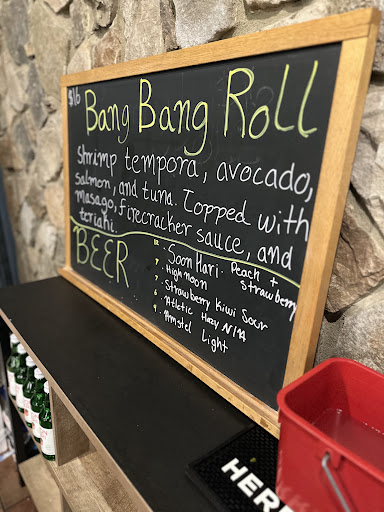 $16
Bang Bang Roll
Shrimp tempora, avocado,
salmon, and tuna. Topped with
masago, firecracker sauce, and
teriaki.
BEER
Soon Hari Peach +
Strawberry
High noon
Strawberry Kiwi Sour
Atletic Hazy N/A
Amstel Light
HER